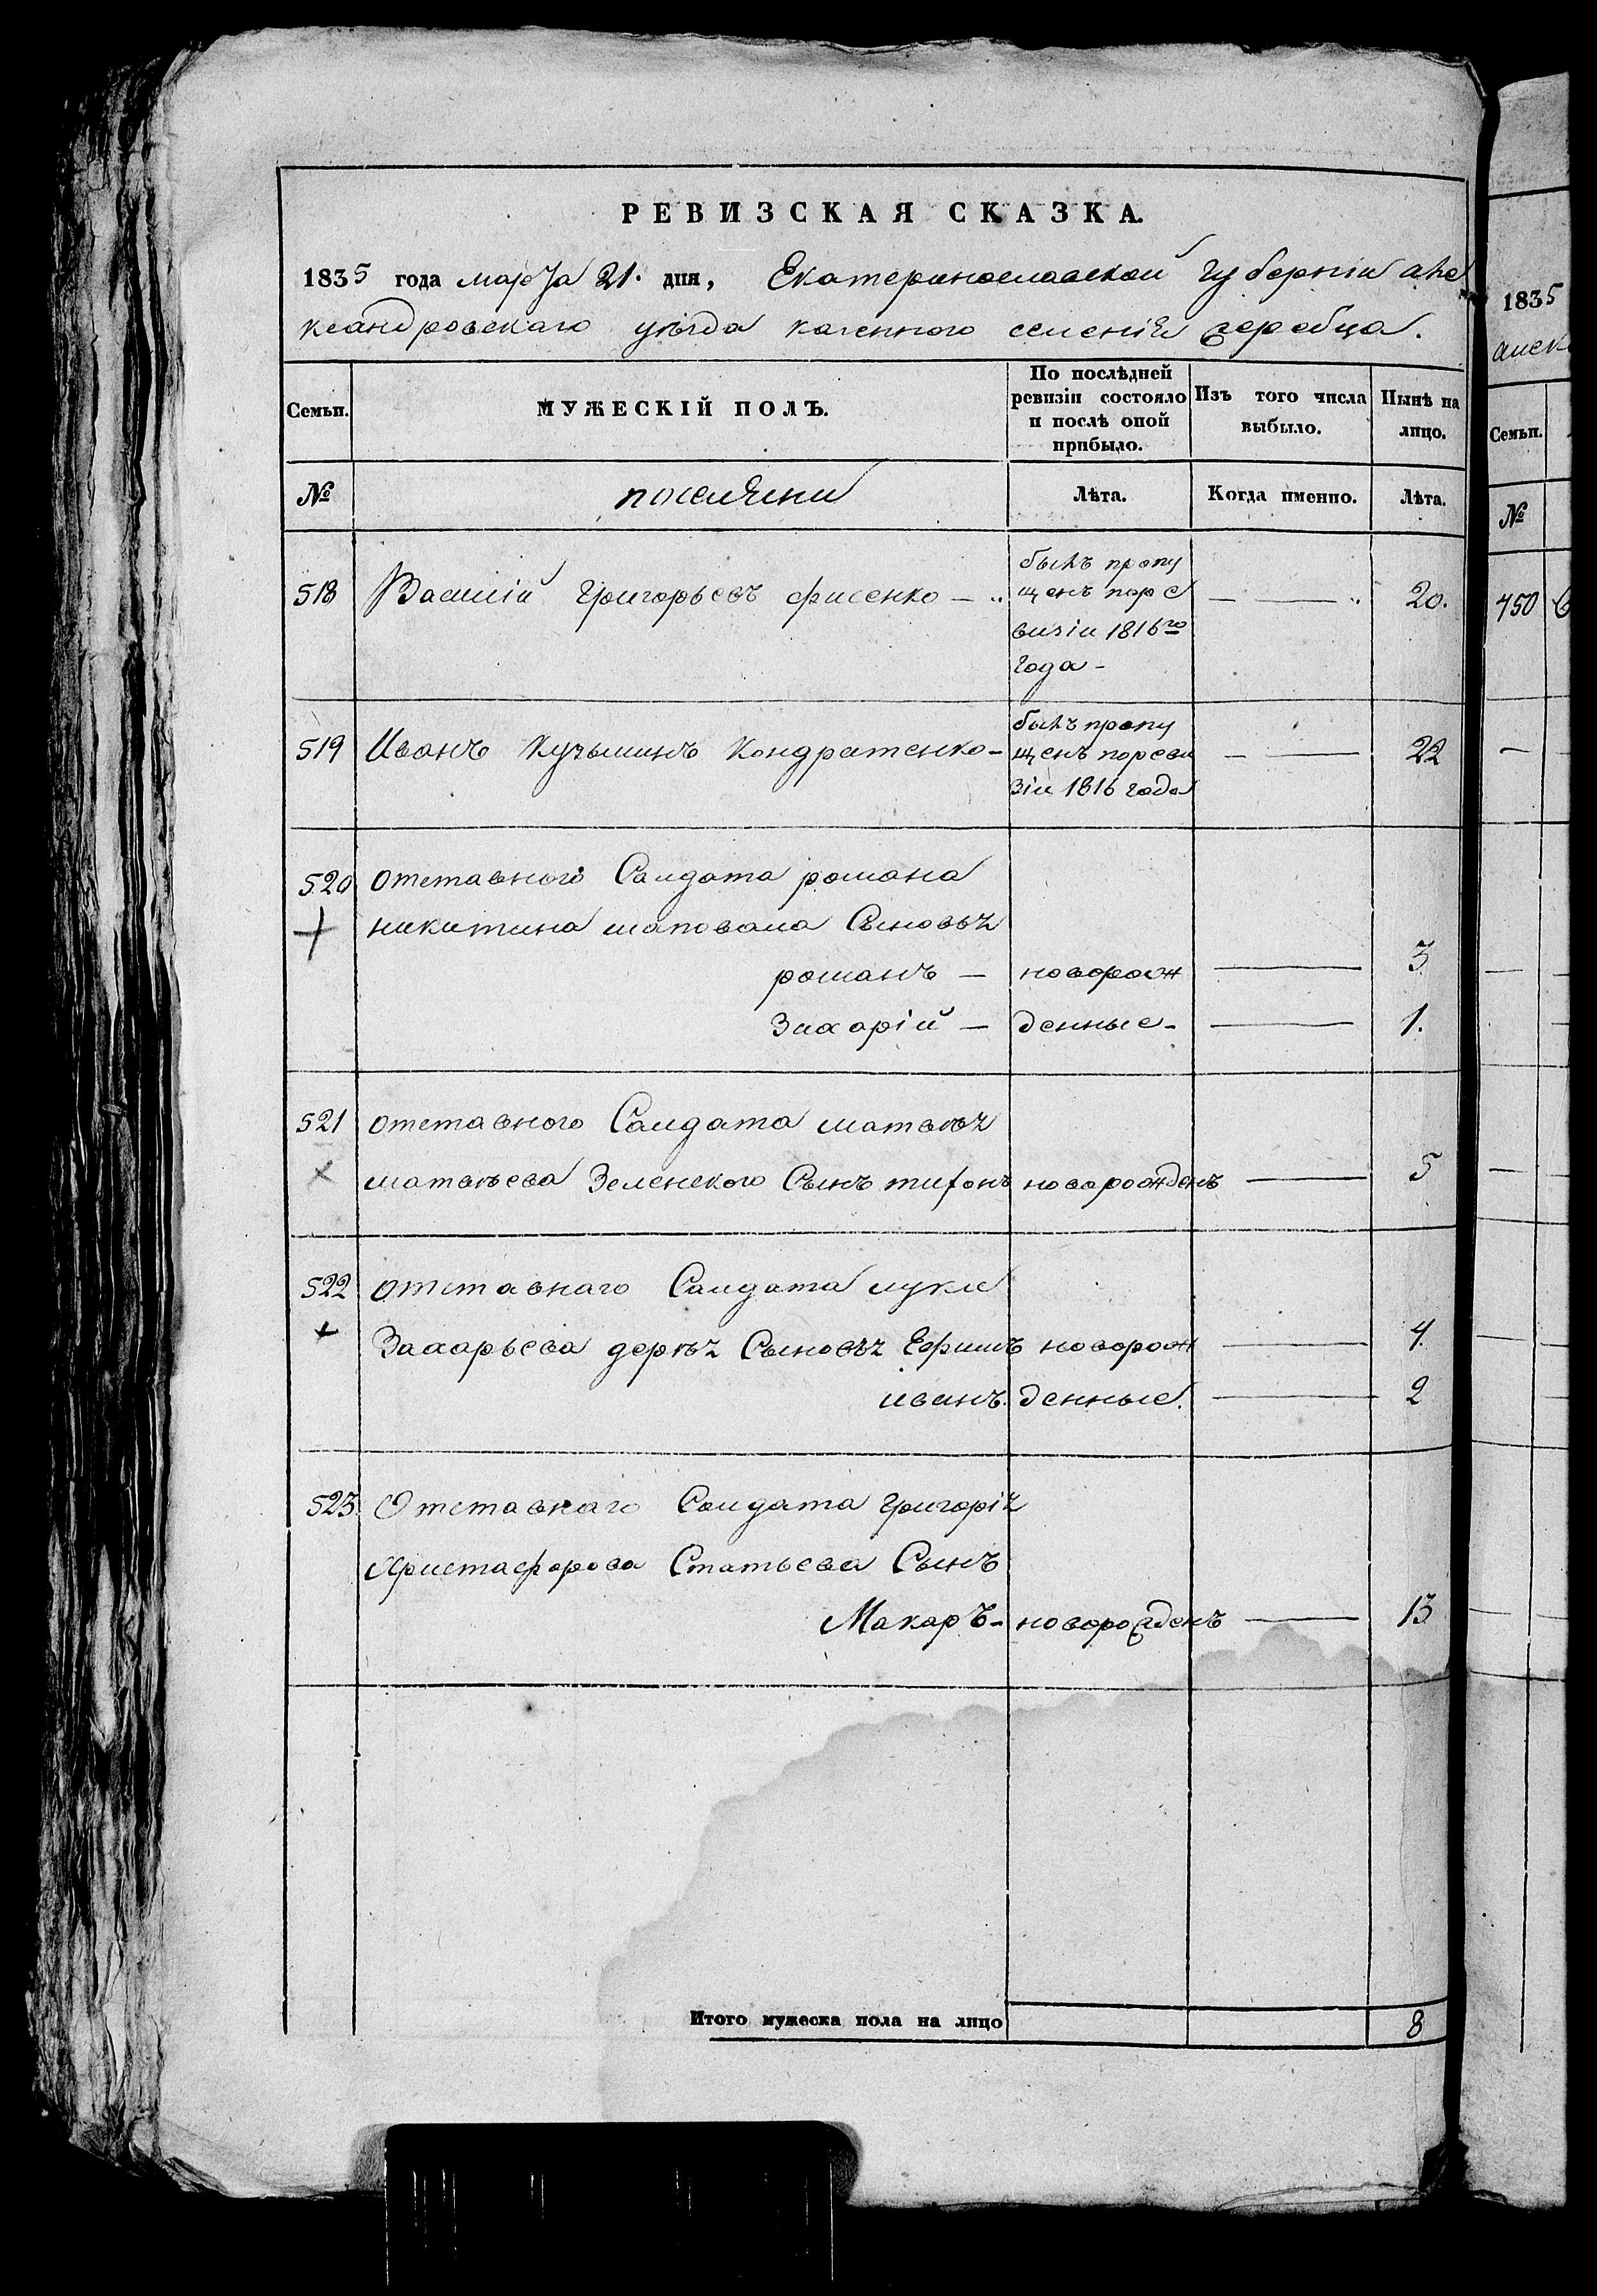 РЕВИЗСКАЯ СКАЗКА.
1835 года марта 21. дня, Екатеринославской губерніи але
ксандровскаго уѣзда казенного селенія жеребца.
Семьи. МУЖЕСКІЙ ПОЛЪ. По послѣдней ревизіи состояло и послѣ оной прибыло. Изъ того числа выбыло. Нынѣ на лицо.
№ поселяни Лѣта. Когда именно. Лѣта.
518 Василій Григорьевъ фисенко — былъ пропу
щенъ поре — 20.
визіи 1816го
года -
519 Иванъ Кузьминъ Кондратенко - былъ пропу
щенъ пореви — 22
зіи 1816 года
520 отставного Салдата романа
никитина шаповала Сыновья
романъ — новорож — 3
Захарій — денные - — 1.
521 отставного Салдата матвѣя
матвѣева Зеленского Сынъ тифонъ новорожденъ — 5
522 отставнаго Салдата луки
Захарьева дерѣя Сыновья Ефимъ новорож — 4
иванъ. денные. — 2
523. Отставнаго Салдата григорія
Христафорова Статьева Сынъ
Макаръ - новорожденъ — 13
Итого мужеска пола на лицо 8
1835
алек
Семьи.
№
750